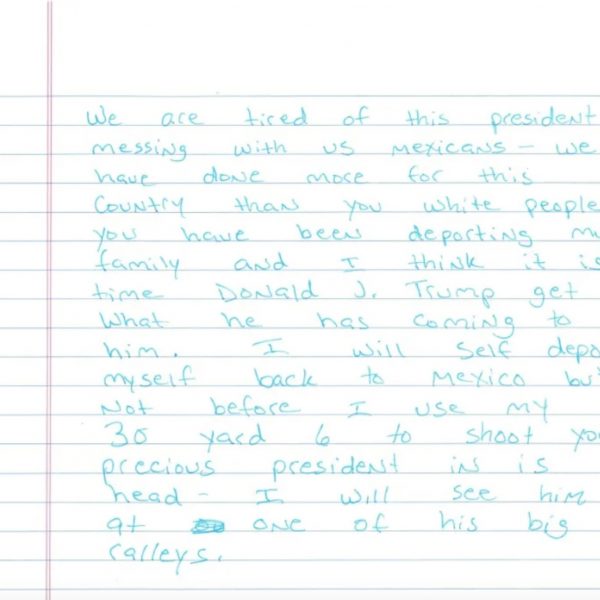 We are tired of this president
messing with us mexicans - we
have done more for this
Country than you white people
you have been deporting my
family and I think it is
time Donald J. Trump get
What he has coming to
him. I will self depo
myself back to mexico but
Not before I use my
30 yard 6 to shoot you
precious president in is
head - I will see him
at one of his big
ralleys.